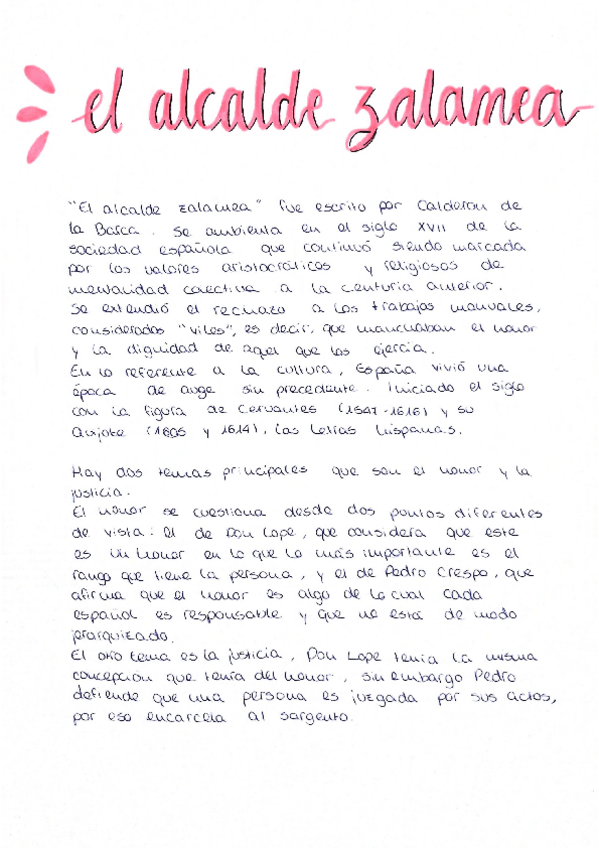 el alcalde zalamea
"El alcalde zalamea" fue escrito por Calderón de
la Barca. Se ambienta en el siglo XVII de la
sociedad española que continuó siendo marcada
por los valores aristocráticos y religiosos de
mentalidad colectiva a la centuria anterior.
Se extendió el rechazo a los trabajos manuales,
considerados "viles", es decir, que manchaban el honor
y la dignidad de aquel que los ejercía.
En lo referente a la cultura, España vivió una
época de auge sin precedente. Iniciado el siglo
con la figura de Cervantes (1547-1616) y su
Quijote (1605 y 1614), las Letras hispanas.
Hay dos temas principales que son el honor y la
justicia.
El honor se cuestiona desde dos puntos diferentes
de vista: El de Don Lope, que considera que este
es un honor en lo que lo más importante es el
rango que tiene la persona, y el de Pedro Crespo, que
afirma que el honor es algo de lo cual cada
español es responsable y que no está de modo
jerarquizado.
El otro tema es la justicia, Don Lope tenía la misma
concepción que tenía del honor, sin embargo Pedro
defiende que una persona es juzgada por sus actos,
por eso encarcela al sargento.